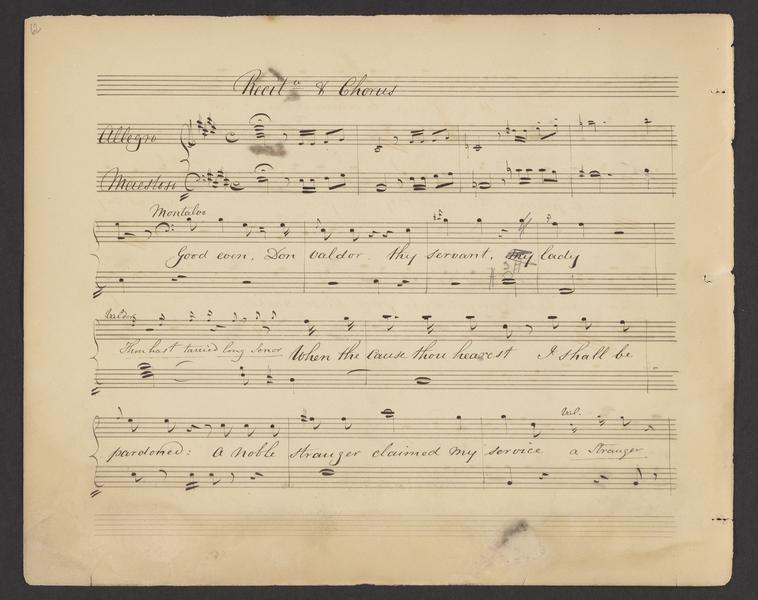 62
Recit.a & Chorus
Allegro
Maestoso
Montalvo
Good even, Don valdor. thy servant, my lady
Valdor
Thou hast tarried long Senor When the cause thou hearest I shall be
Val.
pardoned: a noble stranger claimed my service a Stranger